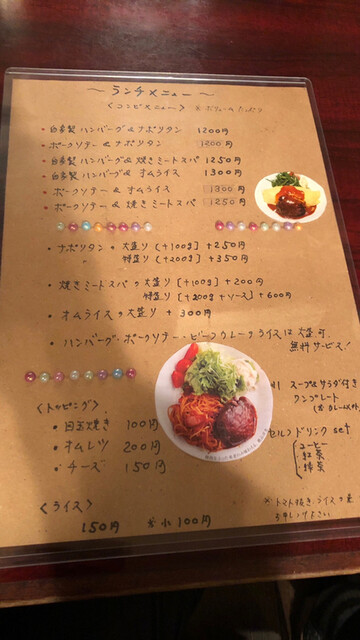 ～ランチメニュー～
〈コンビメニュー〉
・自家製ハンバーグ&ナポリタン 1200円
・ポークソテー&ナポリタン 1200円
・自家製ハンバーグ&焼きミートスパ 1250円
・自家製ハンバーグ&オムライス 1300円
・ポークソテー&オムライス 1300円
・ポークソテー&焼きミートスパ 1250円
・ナポリタンの大盛り(+100g)+250円
特盛り(+200g)+350円
・焼きミートスパの大盛り[+100g]+200円
特盛り[+200g+ソース]+600円
・オムライスの大盛り+300円
・ハンバーグ・ポークソテー・ビーフカレーのライスは大盛可
無料サービス!
スープ&サラダ付き
ワンプレート
〈トッピング〉
・目玉焼き 100円
・オムレツ 200円
・チーズ 150円
セルフドリンクset
コーヒー
紅茶
〈ライス〉
150円 100円